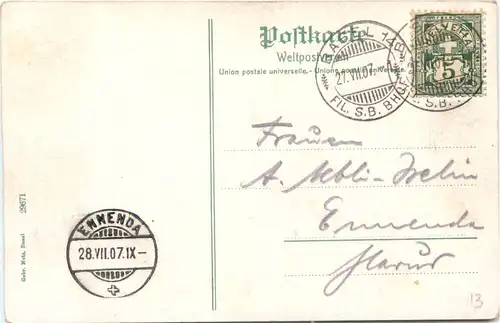 Postkarte
Weltpostverein
Union postale universelle. - Unione postale universale.
BASEL 14
27.VII.07.
FIL. S.B. BHOF.
HELVETIA
5
Frauen
A. Aebli-
Ennenda
Glarus
ENNENDA
28.VII.07.IX-
29671
Gebr. Metz, Basel
13